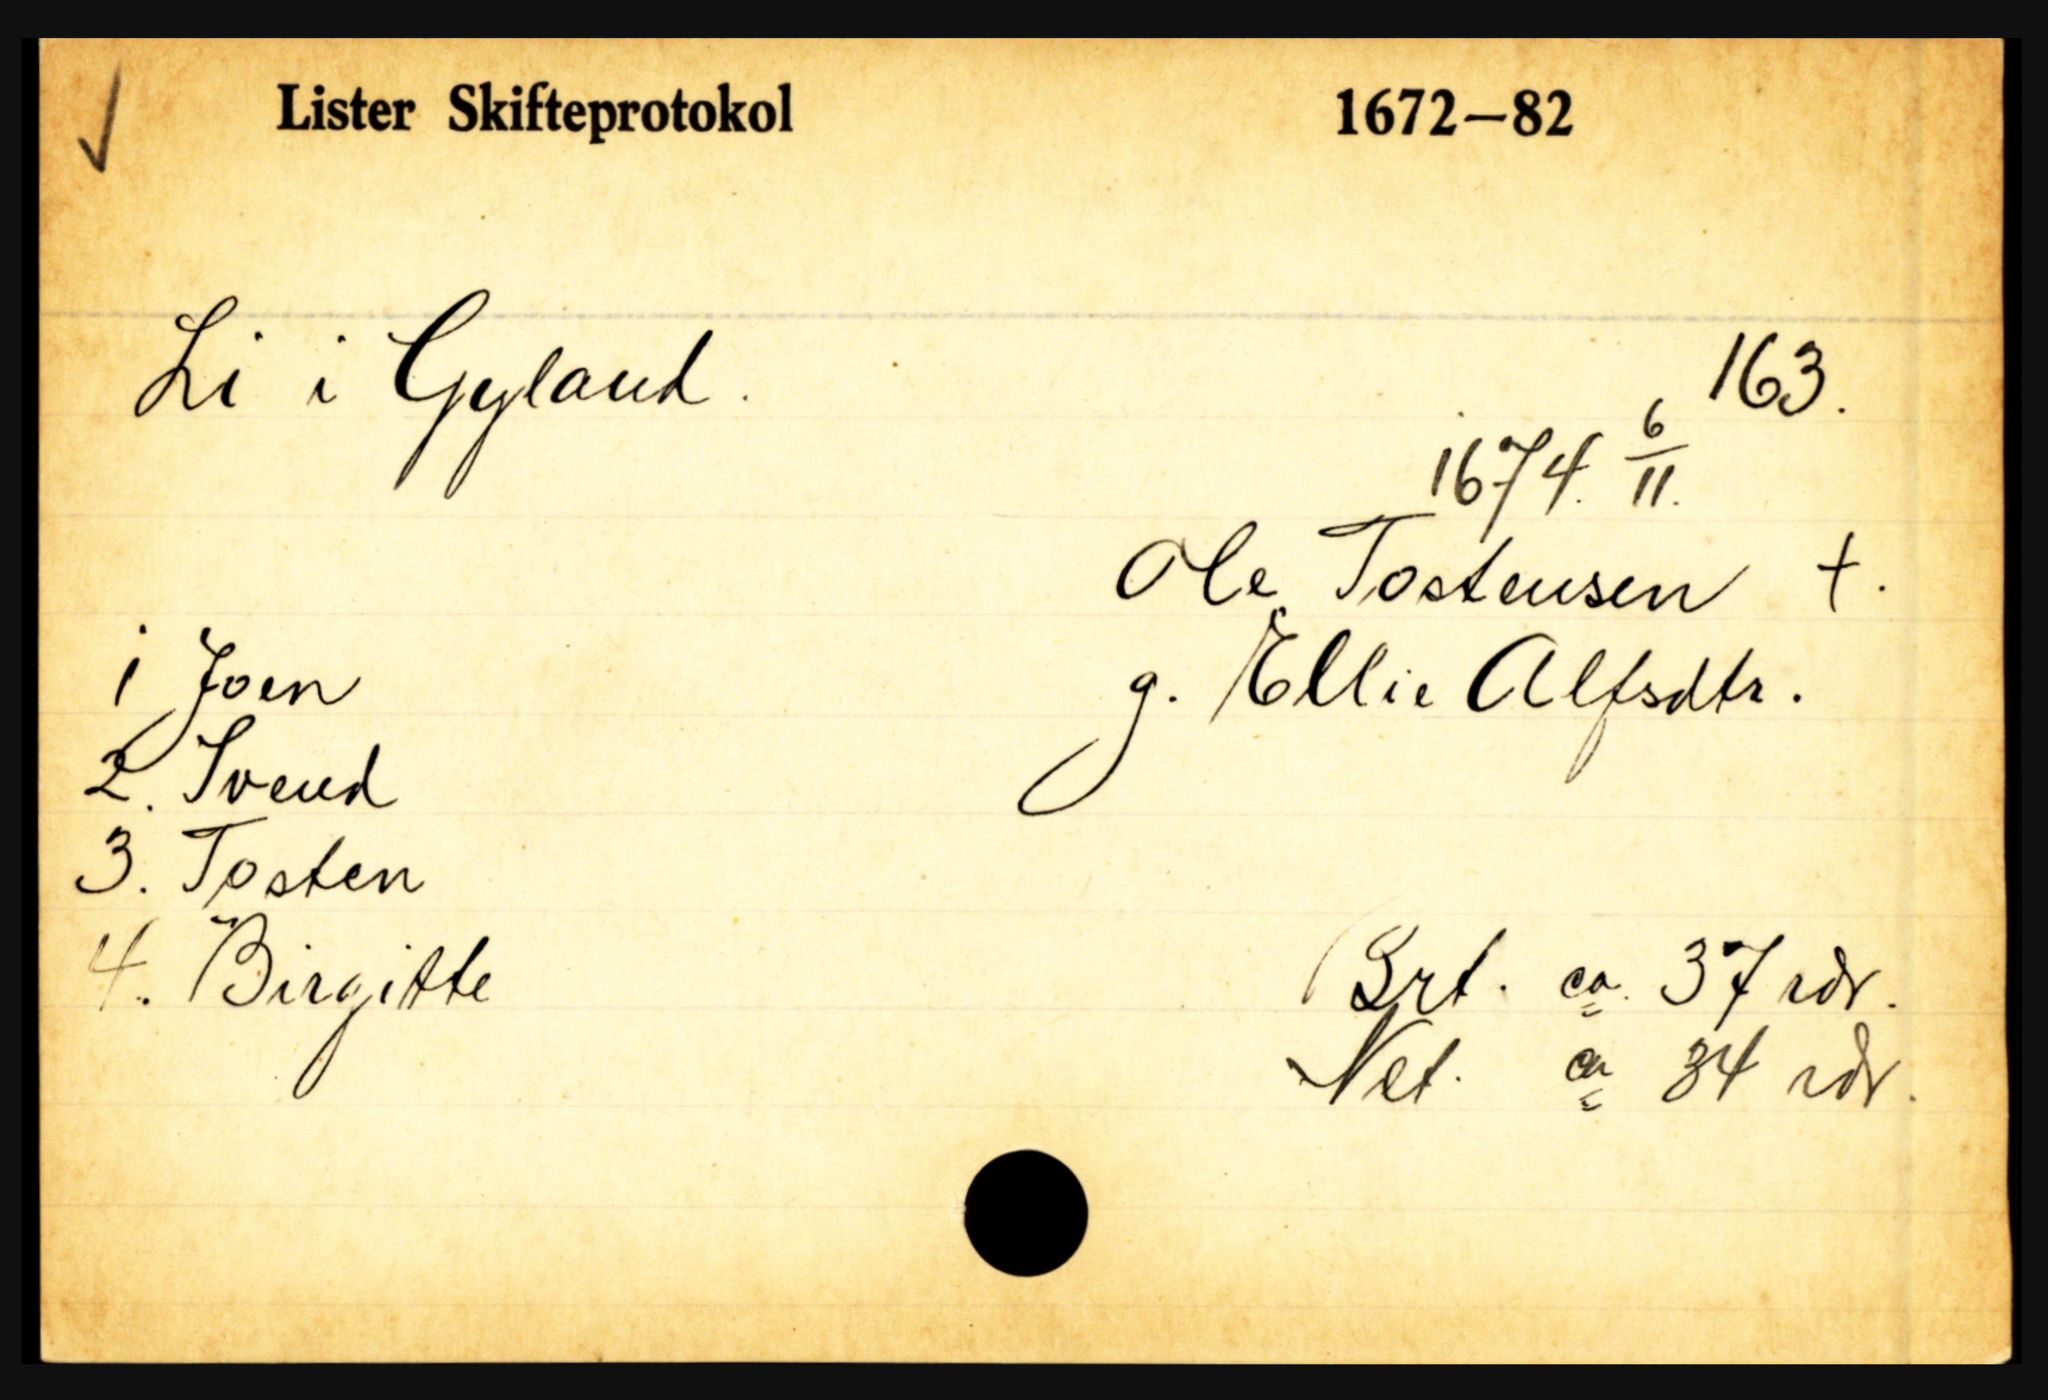 Lister Skifteprotokol 1672–82
Li i Gyland.
163.
1674. 6/11.
Ole Tostensen †.
g. Ellie Alfsdtr.
1 Joen
2. Svend
3. Tosten
4. Birgitte
Brt. ca. 37 rdr.
Net. ca 34 rdr.